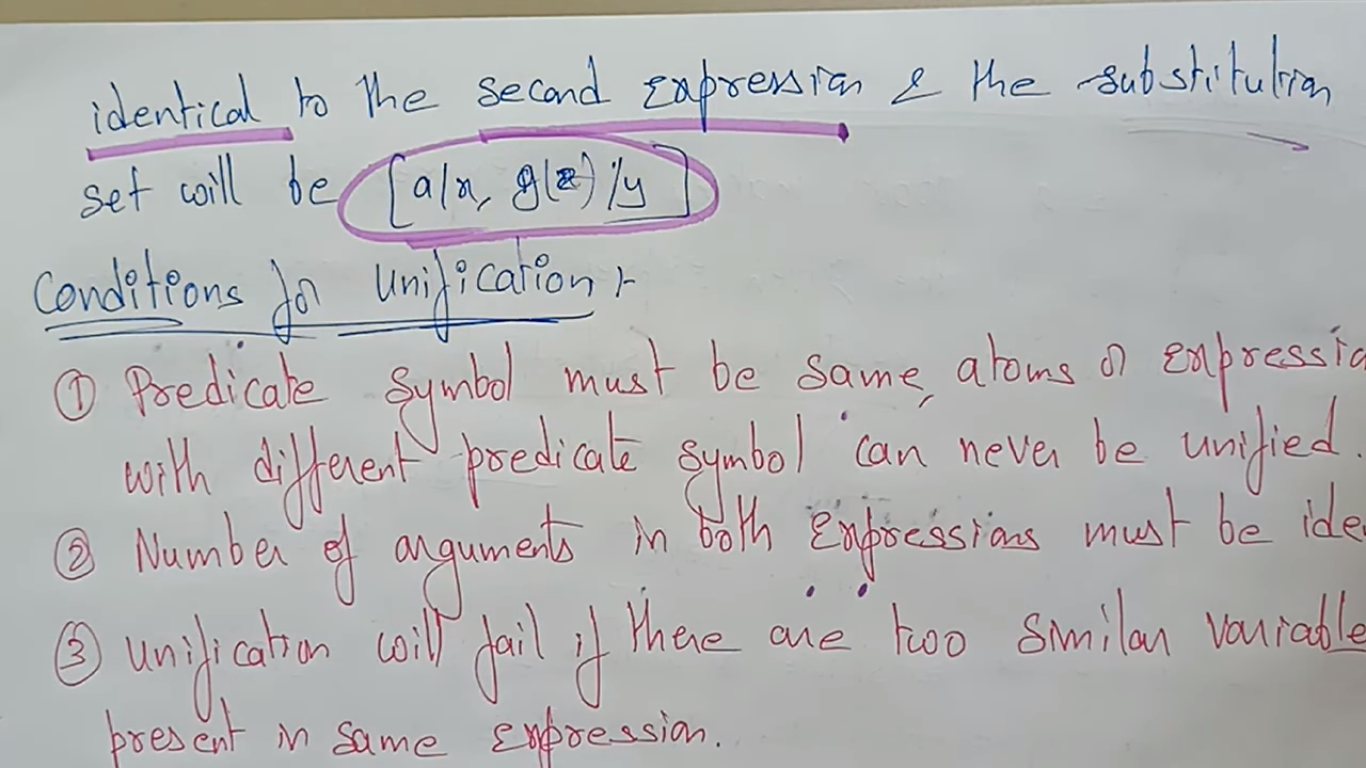 identical to the second expression & the substitution
set will be [a/x, g(z)/y]
Conditions for Unification:-
① Predicate symbol must be same, atoms or expressio
with different predicate symbol can never be unified.
② Number of arguments in both expressions must be ide
③ Unification will fail if there are two similar variable
present in same expression.